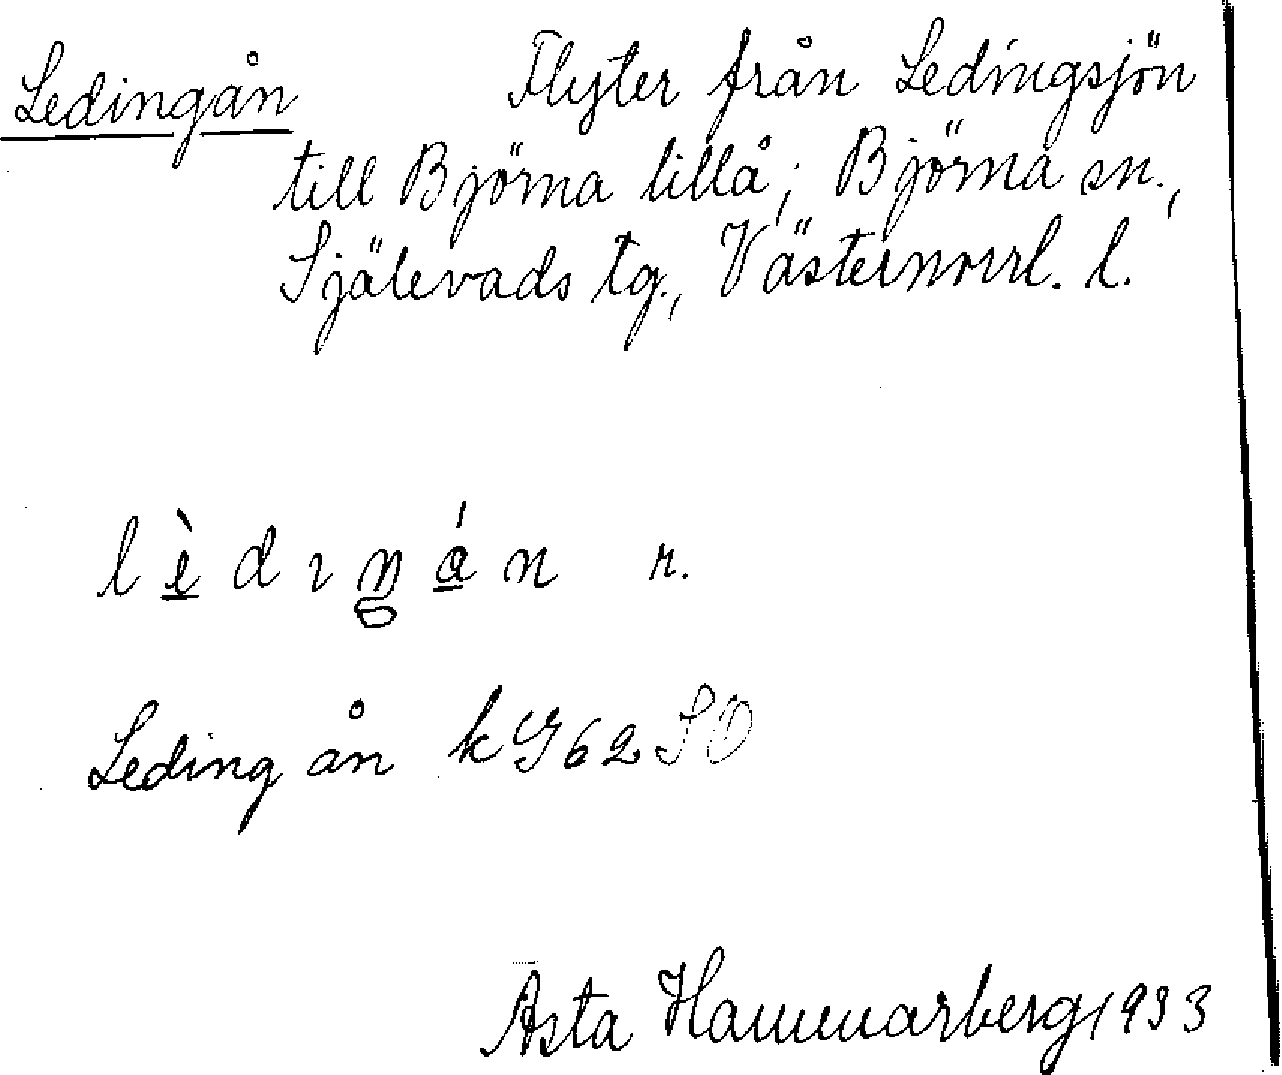 Ledingån Flyter från Ledingsjön
till Björna lillå; Björna sn.,
Själevads tg., Västernorrl. l.
lèdıŋán r.
Ledingån k G 62 SO
Asta Hammarberg 1933